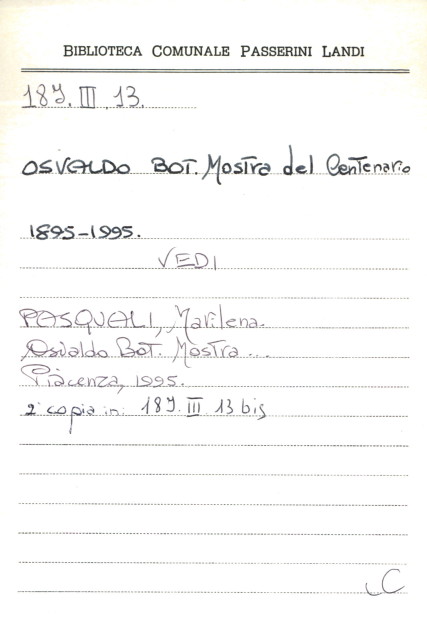 BIBLIOTECA COMUNALE PASSERINI LANDI
18Y. III. 13.
OSVALDO BOT. Mostra del Centenario
1895-1995.
VEDI
PASQUALI, Marilena.
Osvaldo Bot. Mostra...
Piacenza, 1995.
2ª copia in: 18Y. III 13 bis
C